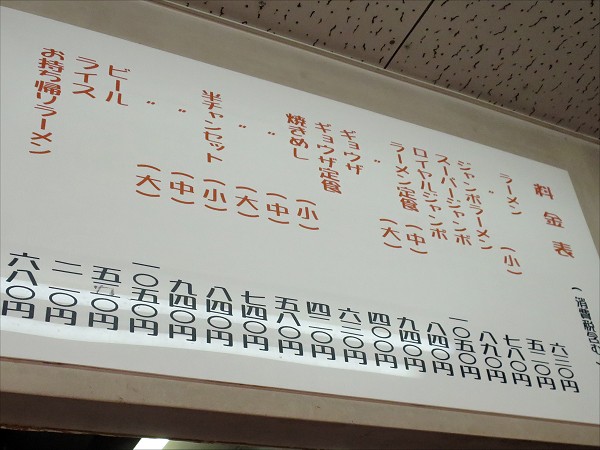 料金表
(消費税含む)
ラーメン 六三〇円
〃 (小) 五二〇円
ジャンボラーメン 七八〇円
スーパージャンボ 八九〇円
ロイヤルジャンボ 一〇五〇円
ラーメン定食 (中) 八四〇円
〃 (大) 九四〇円
ギョウザ 四〇〇円
ギョウザ定食 六三〇円
焼きめし (小) 四二〇円
〃 (中) 五八〇円
〃 (大) 七四〇円
半チャンセット (小) 八四〇円
〃 (中) 九四〇円
〃 (大) 一〇五〇円
ビール
ライス 二一〇円
お持ち帰りラーメン 六八〇円